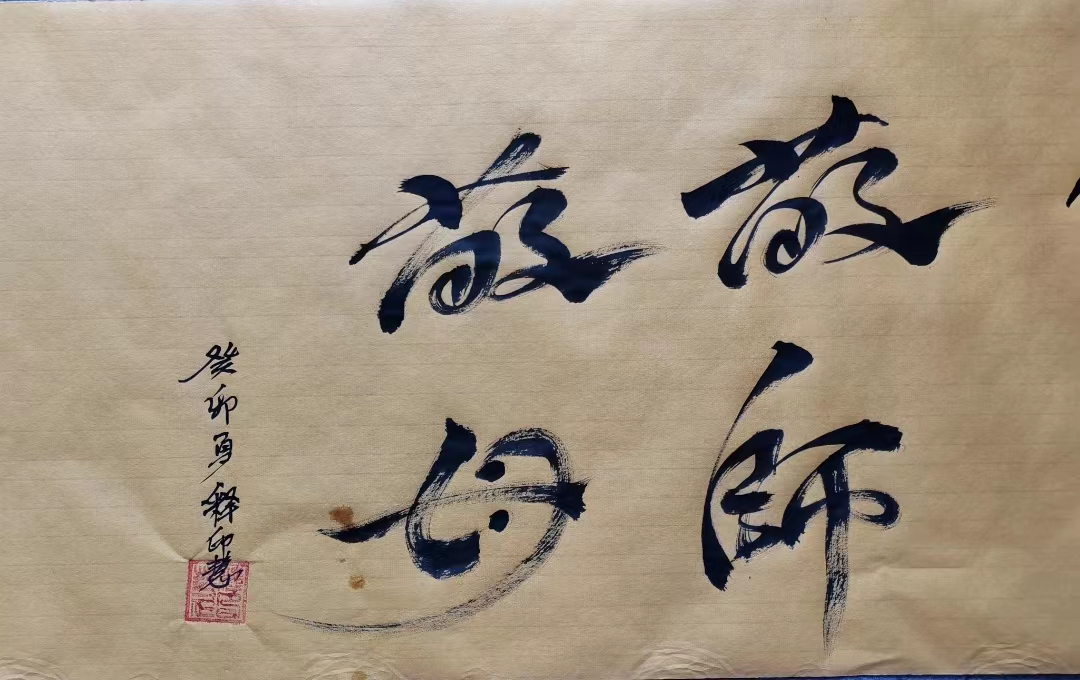 敬師
敬母
癸卯夏释印慧